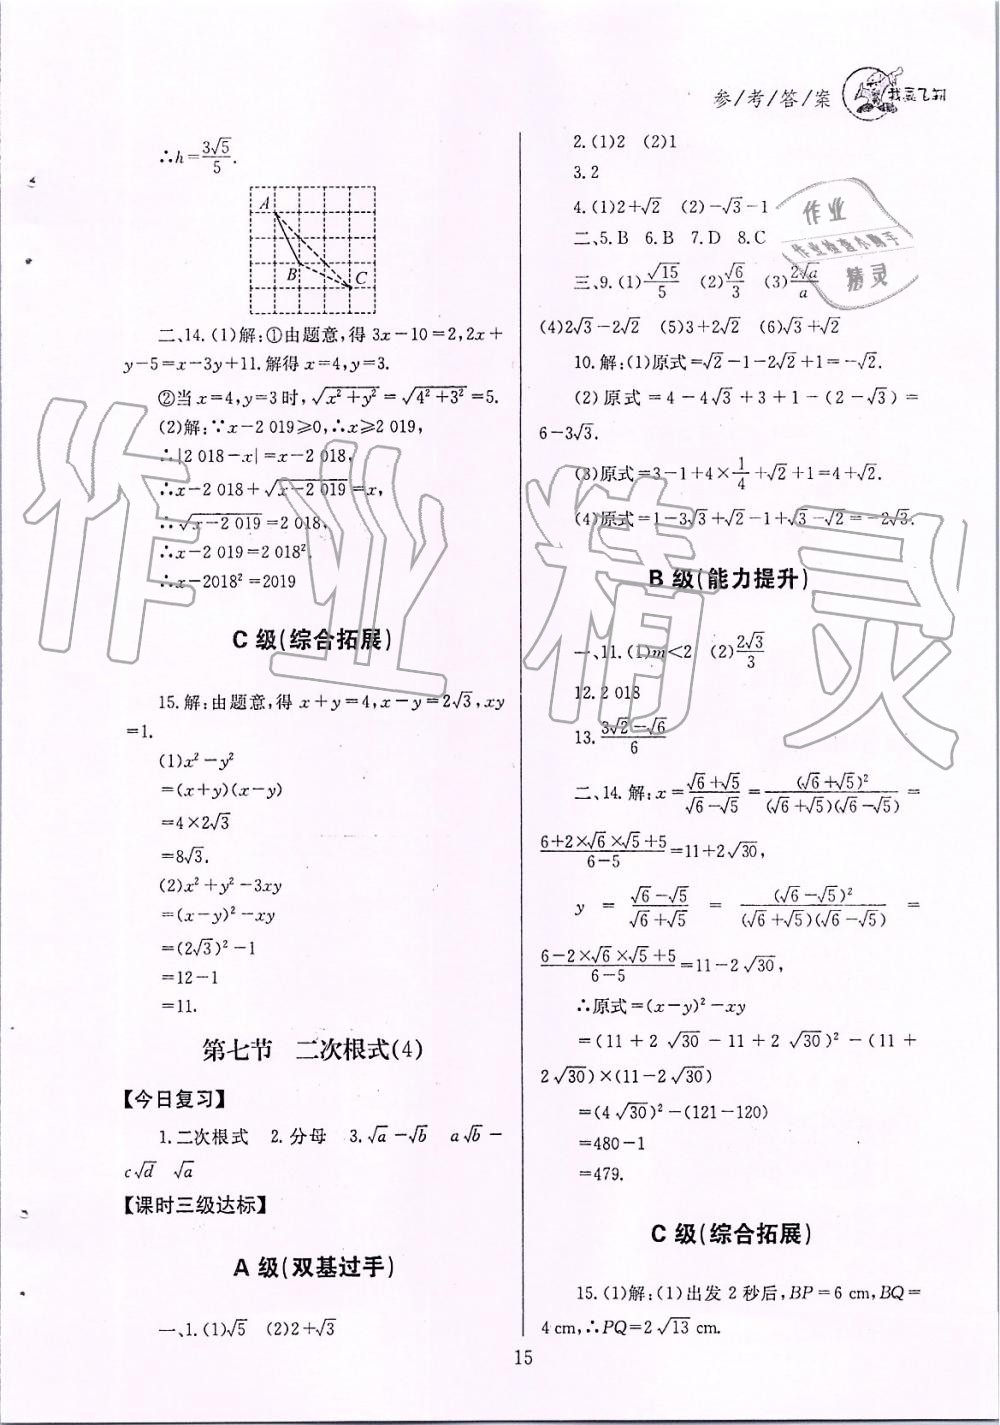 参/考/答/案
我赢飞翔
∴h=3√5/5.
A
B
C
二、14.(1)解:①由题意,得 3x-10=2,2x+
y-5=x-3y+11.解得x=4,y=3.
②当x=4,y=3时,√(x²+y²)=√(4²+3²)=5.
(2)解:∵x-2 019≥0,∴x≥2 019,
∴|2 018-x|=x-2 018,
∴x-2 018+√(x-2 019)=x,
∴√(x-2 019)=2 018,
∴x-2 019=2 018².
∴x-2018²=2019
C 级(综合拓展)
15.解:由题意,得 x+y=4,x-y=2√3,xy
=1.
(1)x²-y²
=(x+y)(x-y)
=4×2√3
=8√3.
(2)x²+y²-3xy
=(x-y)²-xy
=(2√3)²-1
=12-1
=11.
第七节 二次根式(4)
【今日复习】
1.二次根式 2.分母 3.√a-√b a√b-
c√d √a
【课时三级达标】
A 级(双基过手)
一、1.(1)√5 (2)2+√3
2.(1)2 (2)1
3.2
4.(1)2+√2 (2)-√3-1
二、5.B 6.B 7.D 8.C
三、9.(1)√15/5 (2)√6/3 (3)2√a/a
(4)2√3-2√2 (5)3+2√2 (6)√3+√2
10.解:(1)原式=√2-1-2√2+1=-√2.
(2)原式=4-4√3+3+1-(2-√3)=
6-3√3.
(3)原式=3-1+4×1/4+√2+1=4+√2.
(4)原式=1-3√3+√2-1+√3-√2=-2√3.
B 级(能力提升)
一、11.(1)m<2 (2)2√3/3
12.2 018
13.(3√2-√6)/6
二、14.解:x=(√6+√5)/(√6-√5)=(√6+√5)²/((√6+√5)(√6-√5))=
(6+2×√6×√5+5)/(6-5)=11+2√30,
y=(√6-√5)/(√6+√5)=(√6-√5)²/((√6+√5)(√6-√5))=
(6-2×√6×√5+5)/(6-5)=11-2√30,
∴原式=(x-y)²-xy
=(11+2√30-11+2√30)²-(11+
2√30)×(11-2√30)
=(4√30)²-(121-120)
=480-1
=479.
C 级(综合拓展)
15.(1)解:(1)出发 2 秒后,BP=6 cm,BQ=
4 cm,∴PQ=2√13 cm.
15
作业
作业检查小助手
精灵
作业精灵